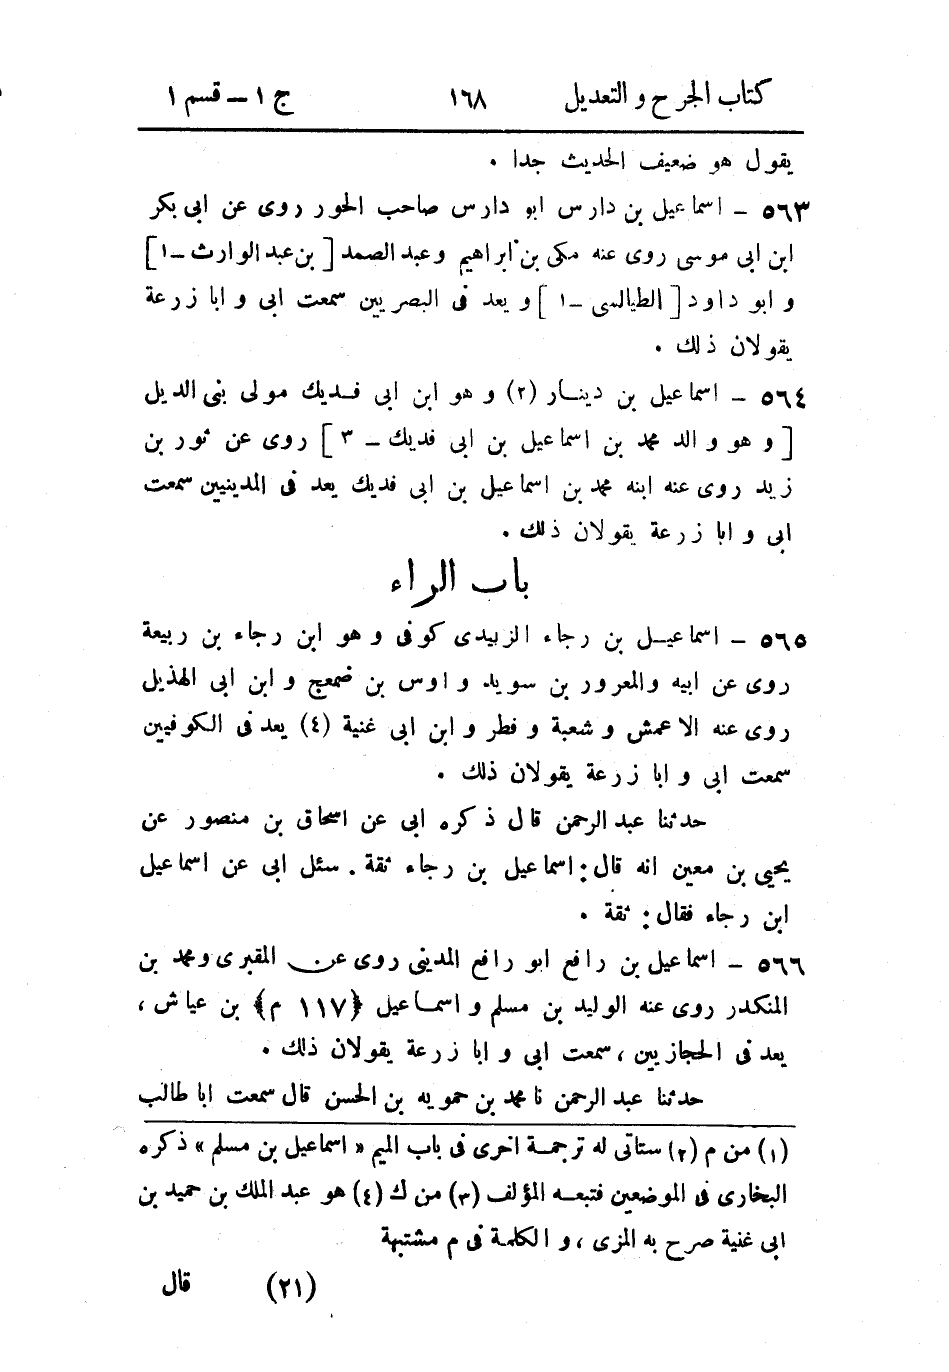 كتاب الجرح و التعديل ١٦٨ ج ١ – قسم ١
يقول هو ضعيف الحديث جدا .
٥٦٣ – اسماعيل بن دارس ابو دارس صاحب الحور روى عن ابى بكر
ابن ابى موسى روى عنه مكى بن ابراهيم وعبد الصمد [ بن عبد الوارث – ١ ]
و ابو داود [ الطيالسى – ١ ] و يعد فى البصريين سمعت ابى و ابا زرعة
يقولان ذلك .
٥٦٤ – اسماعيل بن دينار (٢) و هو ابن ابى فديك مولى بنى الديل
[ و هو و الد محمد بن اسماعيل بن ابى فديك – ٣ ] روى عن ثور بن
زيد روى عنه ابنه محمد بن اسماعيل بن ابى فديك يعد فى المدينيين سمعت
ابى و ابا زرعة يقولان ذلك .
باب الراء
٥٦٥ – اسماعيل بن رجاء الزبيدى كوفى و هو ابن رجاء بن ربيعة
روى عن ابيه والمعرور بن سويد و اوس بن ضمعج و ابن ابى الهذيل
روى عنه الاعمش و شعبة و فطر و ابن ابى غنية (٤) يعد فى الكوفيين
سمعت ابى و ابا زرعة يقولان ذلك .
حدثنا عبد الرحمن قال ذكره ابى عن اسحاق بن منصور عن
يحيى بن معين انه قال : اسماعيل بن رجاء ثقة . سئل ابى عن اسماعيل
ابن رجاء فقال : ثقة .
٥٦٦ – اسماعيل بن رافع ابو رافع المدينى روى عن المقبرى ومحمد بن
المنكدر روى عنه الوليد بن مسلم و اسماعيل ﴿١١٧ م﴾ بن عياش ،
يعد فى الحجازيين ، سمعت ابى و ابا زرعة يقولان ذلك .
حدثنا عبد الرحمن نا محمد بن حمويه بن الحسن قال سمعت ابا طالب
(١) من م (٢) ستاتى له ترجمة اخرى فى باب الميم « اسماعيل بن مسلم » ذكره
البخارى فى الموضعين فتبعه المؤلف (٣) من ك (٤) هو عبد الملك بن حميد بن
ابى غنية صرح به المزى ، و الكلمة فى م مشتبهة
(٢١) قال